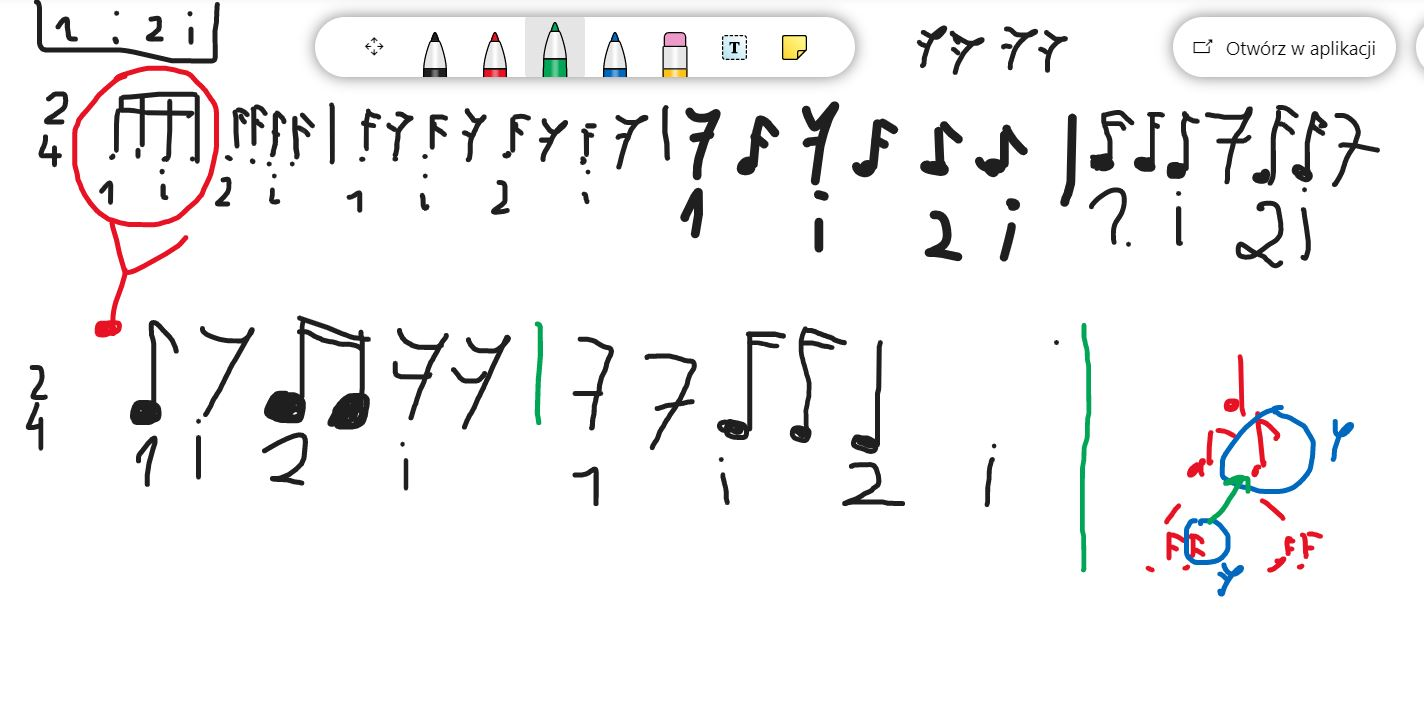 1 i 2 i
T
Otwórz w aplikacji
2
4
1 i 2 i 1 i 2 i 1 i 2 i ? i 2 i
2
4
1 i 2 i 1 i 2 i